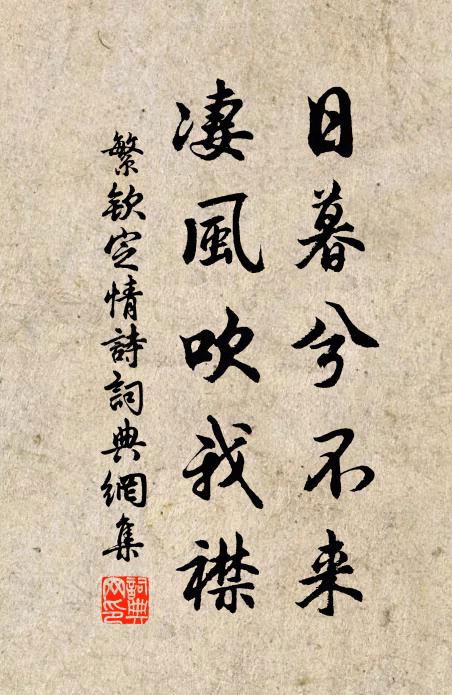 日暮兮不来
凄風吹我襟
繁欽定情詩詞典網集
詞典
网印